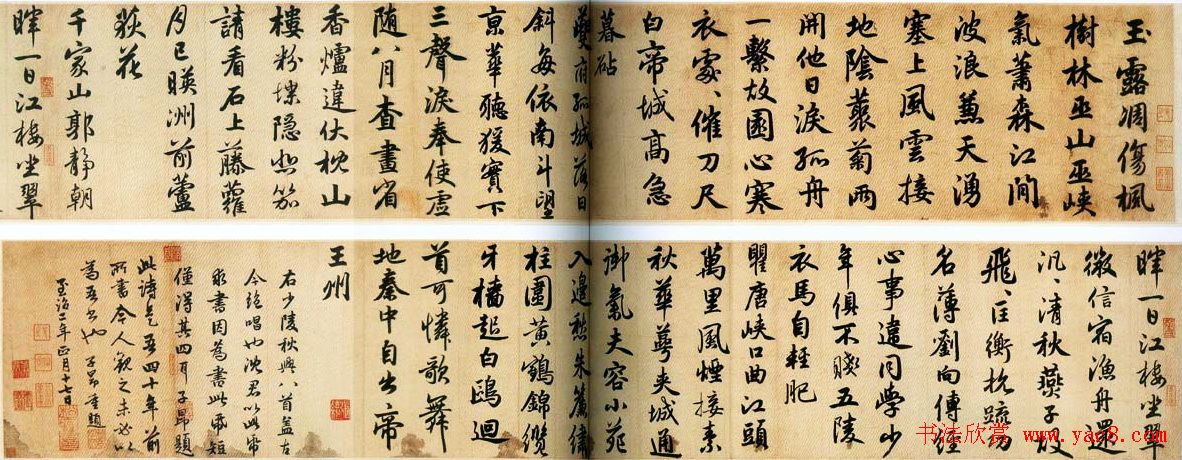 玉露凋傷楓
樹林巫山巫峽
氣蕭森江間
波浪兼天湧
塞上風雲接
地陰藂菊兩
開他日淚孤舟
一繫故園心寒
衣處〻催刀尺
白帝城高急
暮砧
夔府孤城落日
斜每依南斗望
京華聽猨實下
三聲淚奉使虛
随八月查畫省
香爐違伏枕山
樓粉堞隐悲笳
請看石上藤蘿
月已暎洲前蘆
荻花
千家山郭靜朝
暉一日江樓坐翠
暉一日江樓坐翠
微信宿漁舟還
汎〻清秋燕子故
飛〻匡衡抗疏功
名薄劉向傳經
心事違同學少
年俱不賤五陵
衣馬自輕肥
瞿唐峽口曲江頭
萬里風煙接素
秋華萼夹城通
御氣夫容小苑
入邊愁朱簾繡
柱圍黃鶴錦纜
牙檣起白鷗迴
首可憐歌舞
地秦中自古帝
王州
右少陵秋興八首盖古
今絕唱也沈君以此帋
求書因為書此帋短
僅得其四耳 子昂題
此詩是吾四十年前
所書今人觀之未必以
為吾書也 子昂重題
至治二年正月十七日
书法欣赏 www.yac8.com